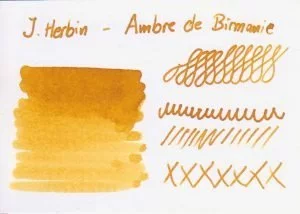 J. Herbin - Ambre de Birmanie
XXXXXXX